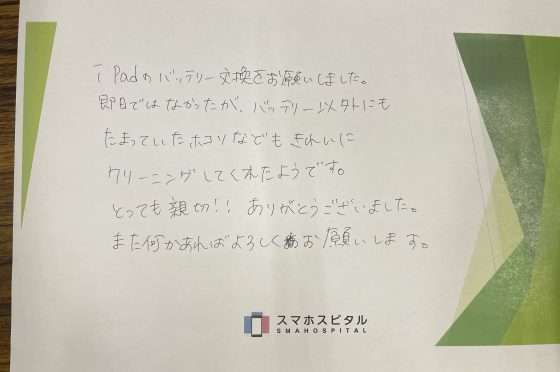 iPadのバッテリー交換をお願いしました。
即日ではなかったが、バッテリー以外にも
たまっていたホコリなどもきれいに
クリーニングしてくれたようです。
とっても親切!! ありがとうございました。
また何かあればよろしくお願いします。
スマホスピタル
SMAHOSPITAL